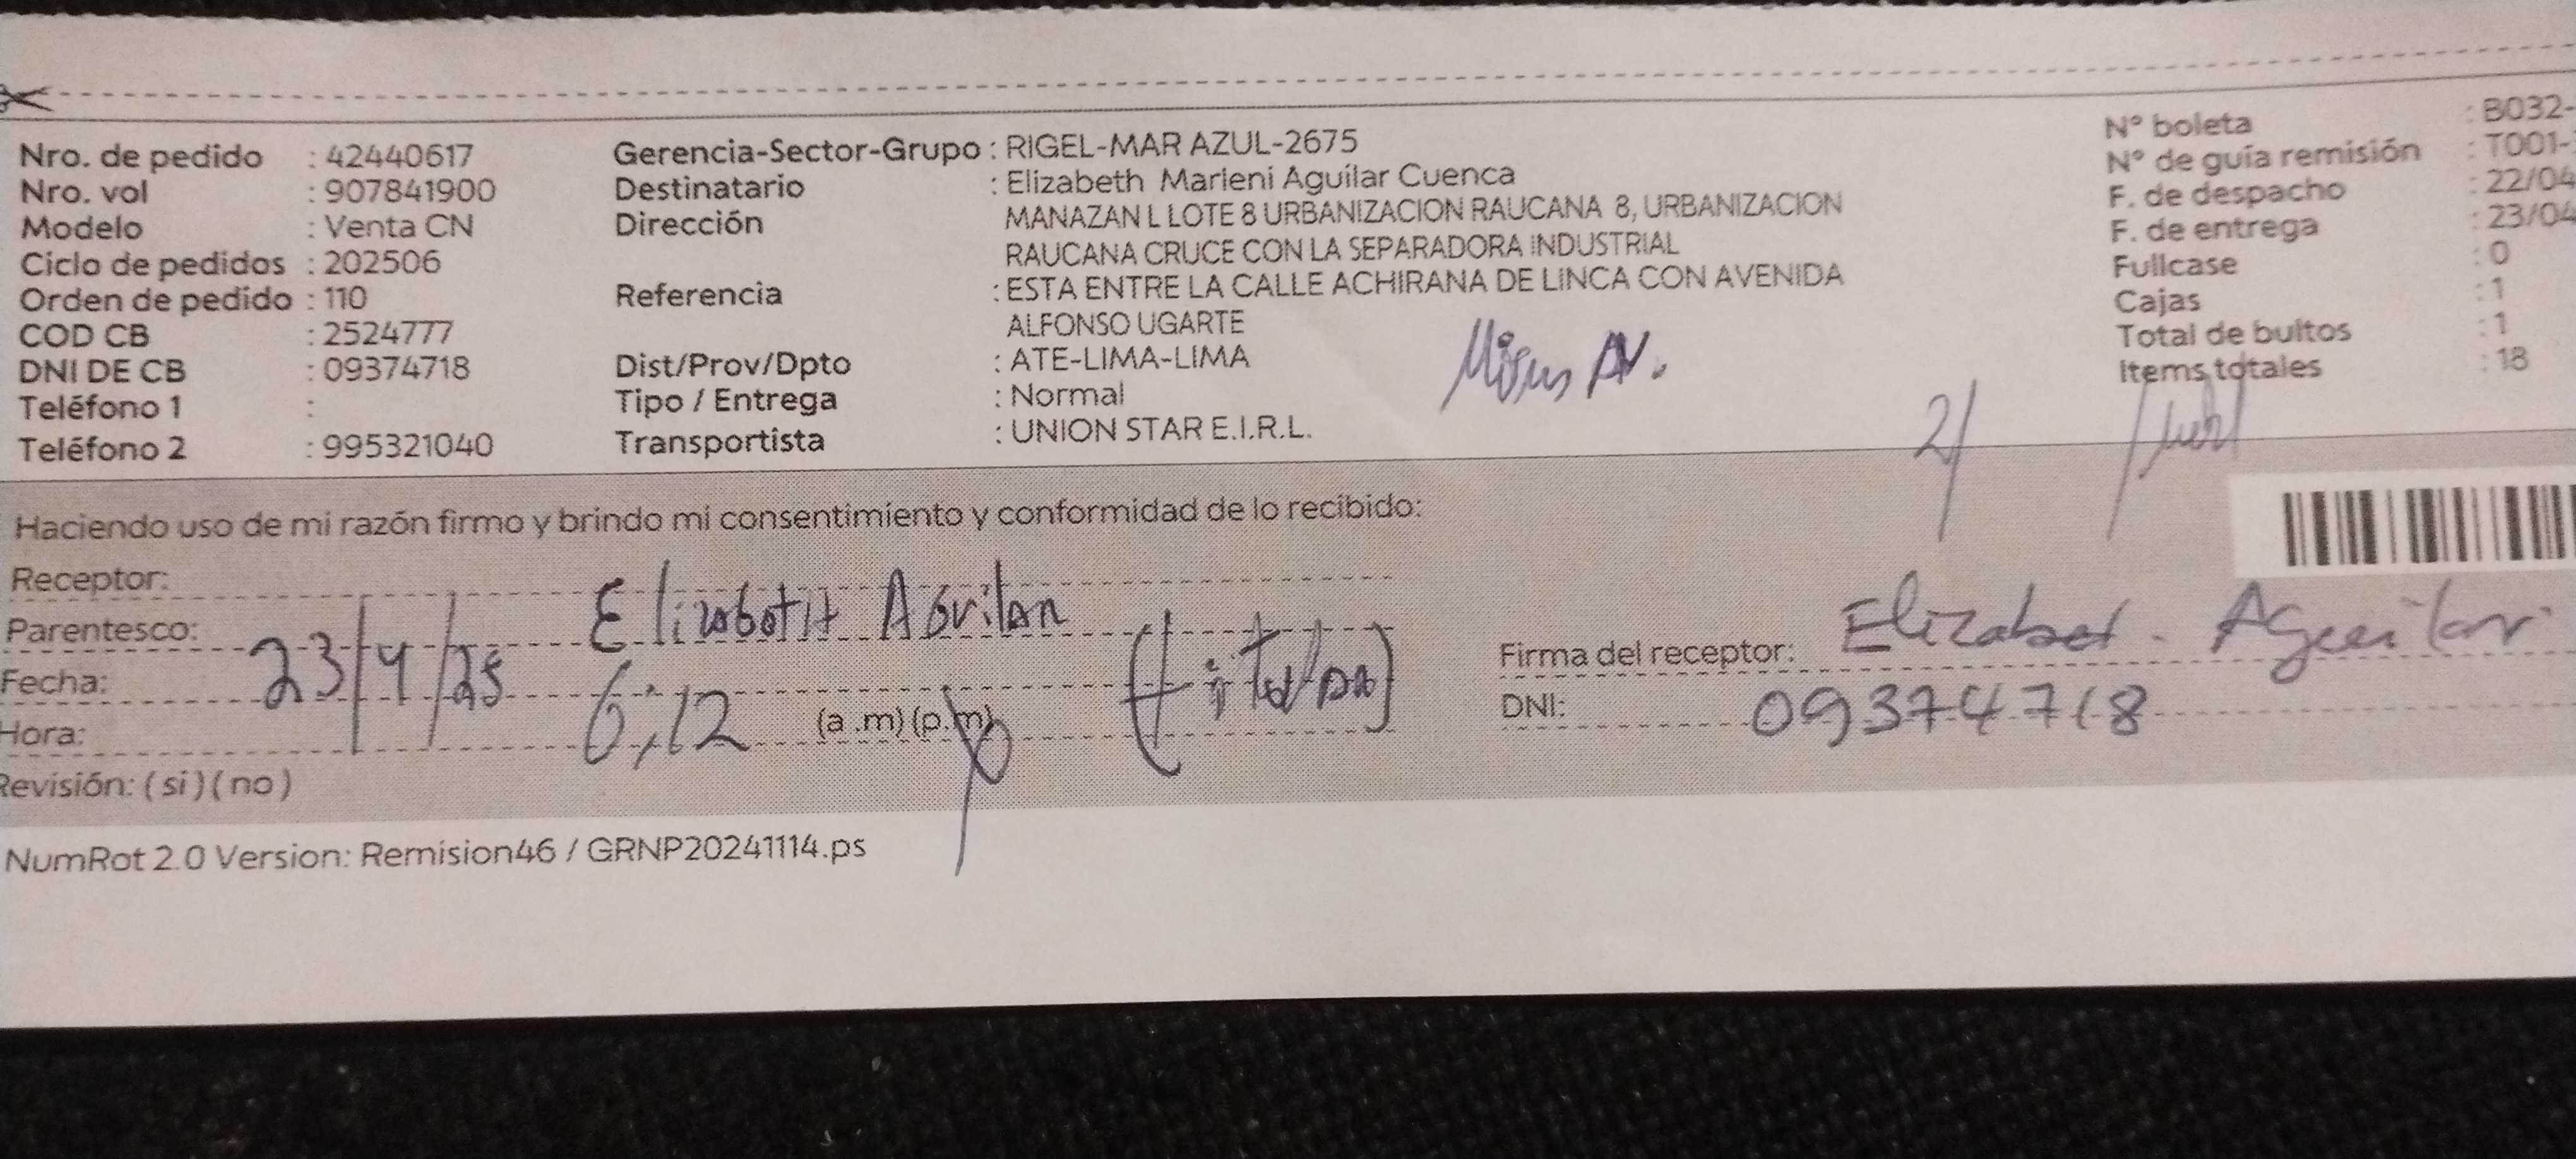 Nro. de pedido : 42440617
Nro. vol : 907841900
Modelo : Venta CN
Ciclo de pedidos : 202506
Orden de pedido : 110
COD CB : 2524777
DNI DE CB : 09374718
Teléfono 1 :
Teléfono 2 : 995321040
Gerencia-Sector-Grupo : RIGEL-MAR AZUL-2675
Destinatario : Elizabeth Marleni Aguilar Cuenca
Dirección MANAZAN L LOTE 8 URBANIZACION RAUCANA 8, URBANIZACION
RAUCANA CRUCE CON LA SEPARADORA INDUSTRIAL
Referencia : ESTA ENTRE LA CALLE ACHIRANA DE LINCA CON AVENIDA
ALFONSO UGARTE
Dist/Prov/Dpto : ATE-LIMA-LIMA
Tipo / Entrega : Normal
Transportista : UNION STAR E.I.R.L.
N° boleta : B032-
N° de guía remisión : T001-
F. de despacho : 22/04
F. de entrega : 23/04
Fullcase : 0
Cajas : 1
Total de bultos : 1
Items totales : 18
Haciendo uso de mi razón firmo y brindo mi consentimiento y conformidad de lo recibido:
Receptor: Elizabeth Aguilar
Parentesco: (titular)
Fecha: 23/4/25
Hora: 6:12 (a.m) (p.m)
Revisión: (si) (no)
Firma del receptor: Elizabet. Aguilar
DNI: 09374718
NumRot 2.0 Version: Remision46 / GRNP20241114.ps